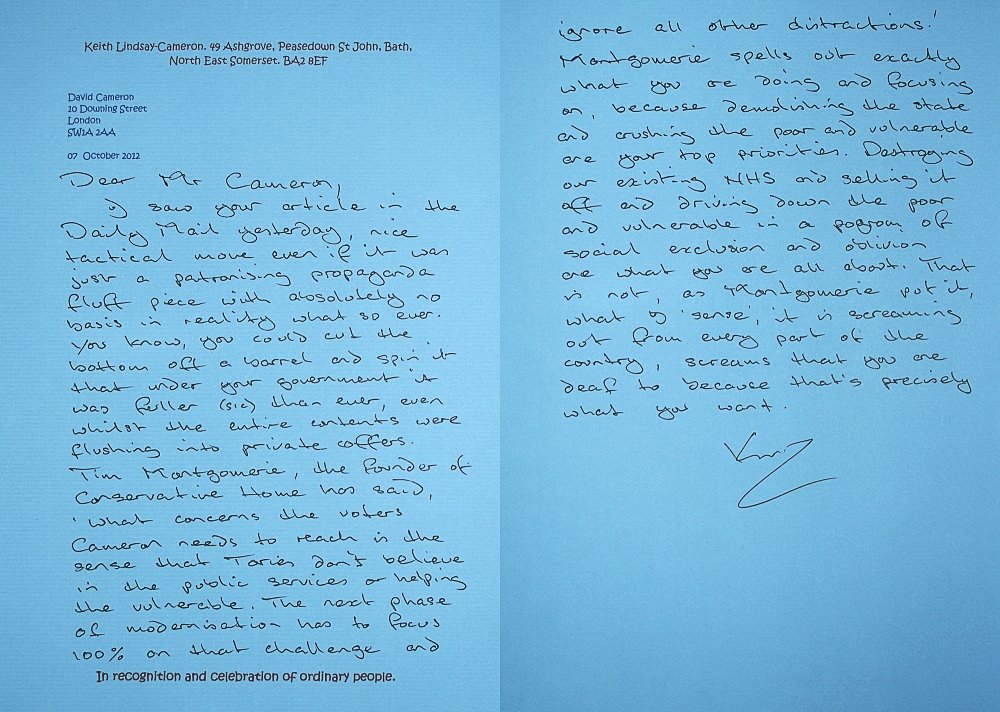 Keith Lindsay-Cameron. 49 Ashgrove, Peasedown St John, Bath,
North East Somerset. BA2 8EF
David Cameron
10 Downing Street
London
SW1A 2AA
07 October 2012
Dear Mr Cameron,
I saw your article in the
Daily Mail yesterday, nice
tactical move even if it was
just a patronising propaganda
fluff piece with absolutely no
basis in reality what so ever.
You know, you could cut the
bottom off a barrel and spin it
that under your government it
was fuller (sic) than ever, even
whilst the entire contents were
flushing into private coffers.
Tim Montgomerie, the founder of
Conservative Home has said,
'what concerns the voters
Cameron needs to reach is the
sense that Tories don't believe
in the public services or helping
the vulnerable. The next phase
of modernisation has to focus
100% on that challenge and
In recognition and celebration of ordinary people.
ignore all other distractions.'
Montgomerie spells out exactly
what you are doing and focusing
on, because demolishing the state
and crushing the poor and vulnerable
are your top priorities. Destroying
our existing NHS and selling it
off and driving down the poor
and vulnerable in a pogrom of
social exclusion and oblivion
are what you are all about. That
is not, as Montgomerie put it,
what I 'sense', it is screaming
out from every part of the
country, screams that you are
deaf to because that's precisely
what you want.